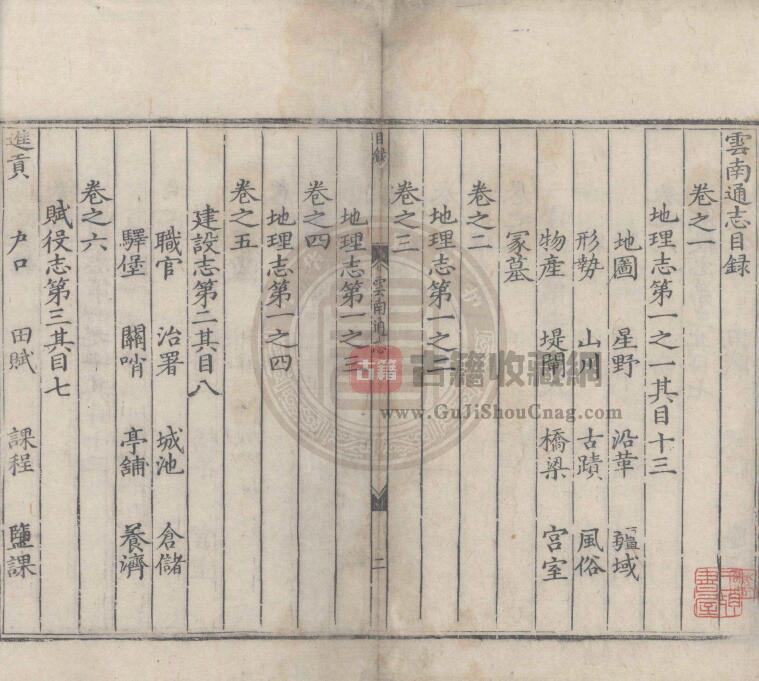 雲南通志目録
卷之一
地理志第一之一其目十三
地圖 星野 沿革 疆域
形勢 山川 古蹟 風俗
物產 堤閘 橋梁 宮室
冢墓
卷之二
地理志第一之二
卷之三
地理志第一之三
目録
雲南通志
二
卷之四
地理志第一之四
卷之五
建設志第二其目八
職官 治署 城池 倉儲
驛堡 關哨 亭舖 養濟
卷之六
賦役志第三其目七
進貢 户口 田賦 課程 鹽課
古籍
古籍收藏網
www.GuJiShouCnag.com